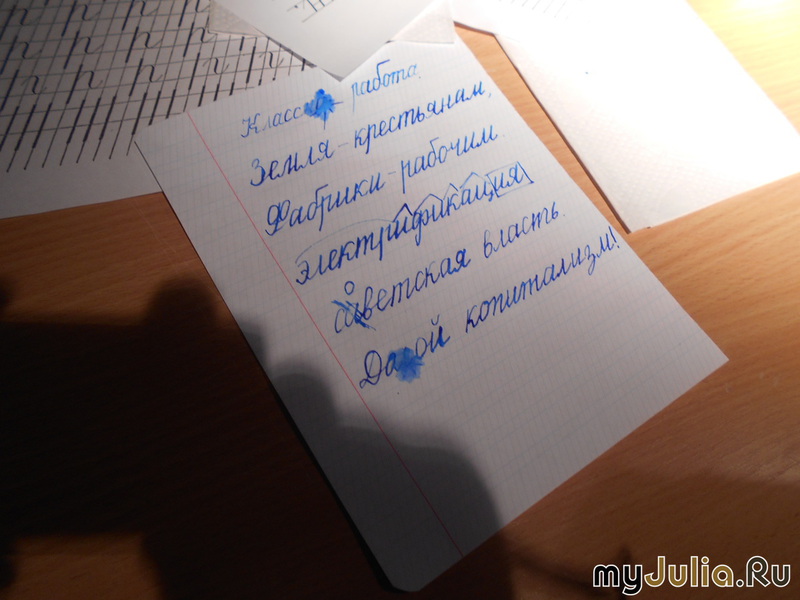 Класс работа.
Земля - крестьянам,
Фабрики - рабочим.
электрификация
советская власть.
Да ой копитализм!
myJulia.Ru